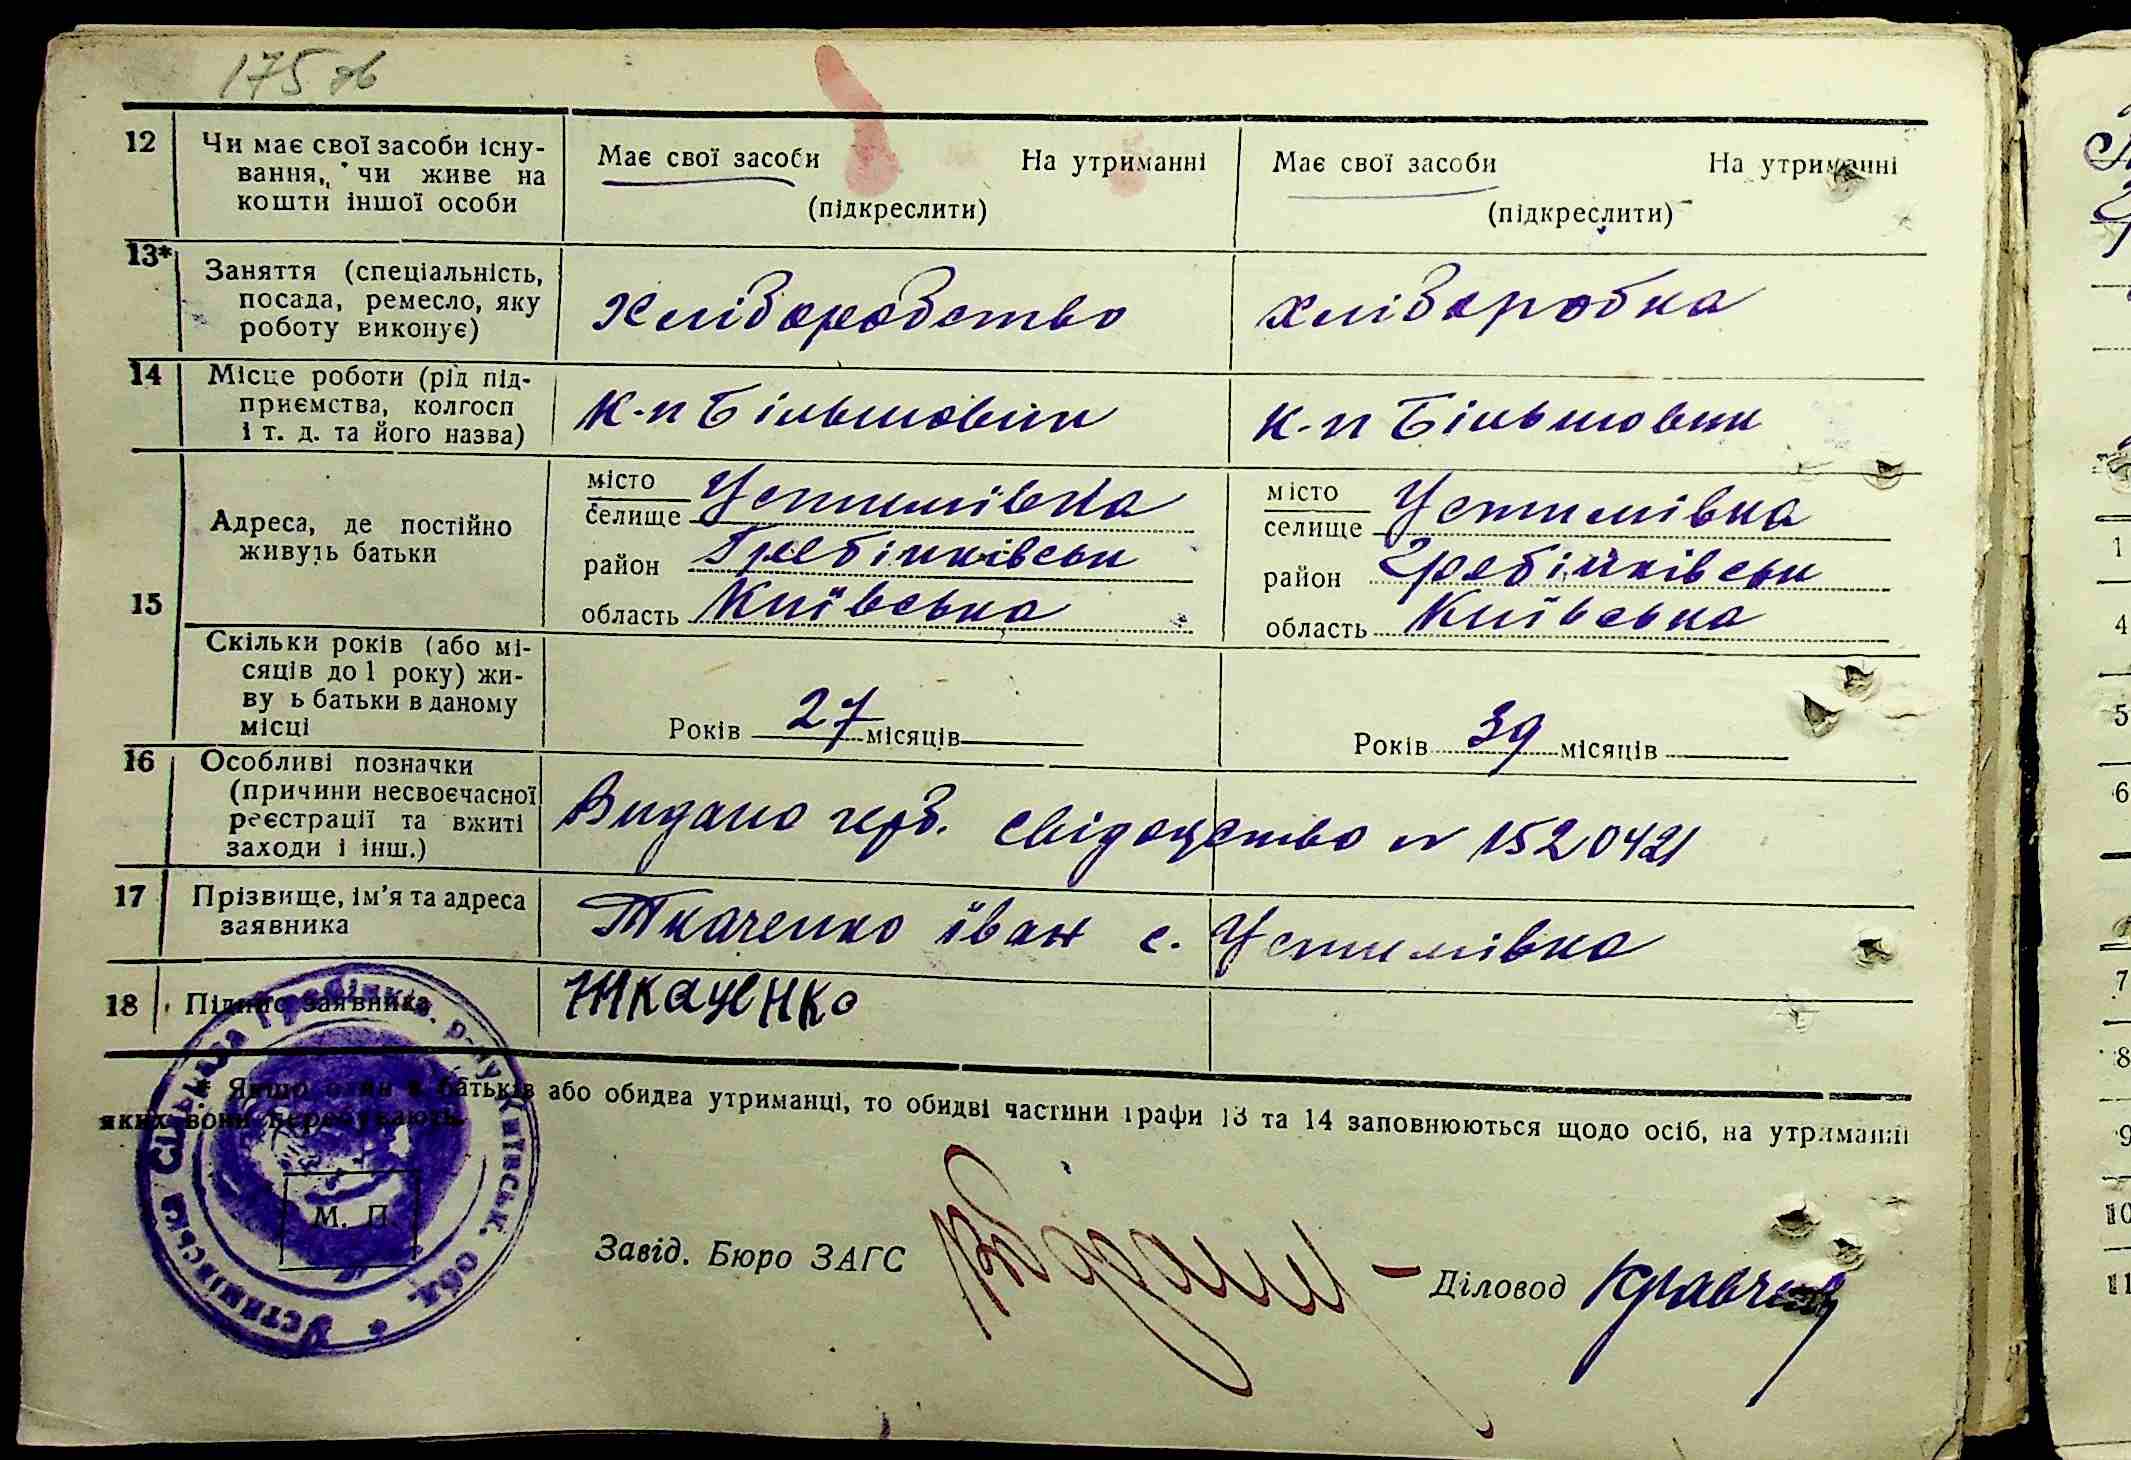 175 зв
12 Чи має свої засоби існу-
вання, чи живе на
кошти іншої особи
Має свої засоби На утриманні
(підкреслити)
Має свої засоби На утриманні
(підкреслити)
13* Заняття (спеціальність,
посада, ремесло, яку
роботу виконує)
Хліборобство
хліборобка
14 Місце роботи (рід під-
приємства, колгосп
і т. д. та його назва)
к-п Більшовик
к-п Більшовик
15
Адреса, де постійно
живуть батьки
місто
селище Устимівка
район Гребінківськ
область Київська
місто
селище Устимівка
район Гребінківськ
область Київська
Скільки років (або мі-
сяців до 1 року) жи-
ву ь батьки в даному
місці
Років 27 місяців
Років 39 місяців
16 Особливі позначки
(причини несвоєчасної
реєстрації та вжиті
заходи і інш.)
Видано герб. свідоцтво № 1520421
17 Прізвище, ім'я та адреса
заявника
Ткаченко Іван с. Устимівка
18 Підпис заявника
Ткаченко
* Якщо один з батьків або обидва утриманці, то обидві частини графи 13 та 14 заповнюються щодо осіб, на утриманні
яких вони перебувають.
Устимівська сільрада Гребінків. р-ну Київськ. обл.
М. П.
Завід. Бюро ЗАГС
Діловод Кравченко